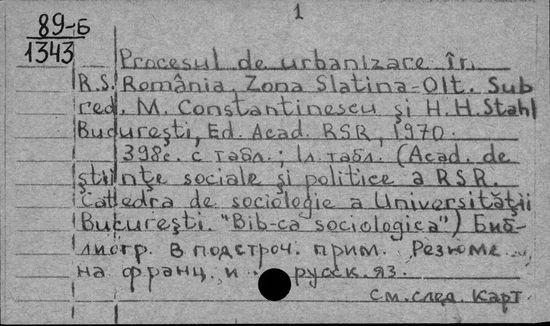 1
89-Б
1343
Procesul de urbanizare în
R.S. România. Zona Slatina-Olt. Sub
red. M. Constantinescu şi H.H. Stahl
Bucureşti, Ed. Acad. RSR, 1970.
398с. с табл.; 1л. табл. (Acad. de
ştiinţe sociale şi politice a RSR.
Catedra de sociologie a Universităţii
Bucureşti. "Bib-ca sociologica") Биб-
лиогр. в подстроч. прим. Резюме
на франц. и русск. яз.
См. след. карт.